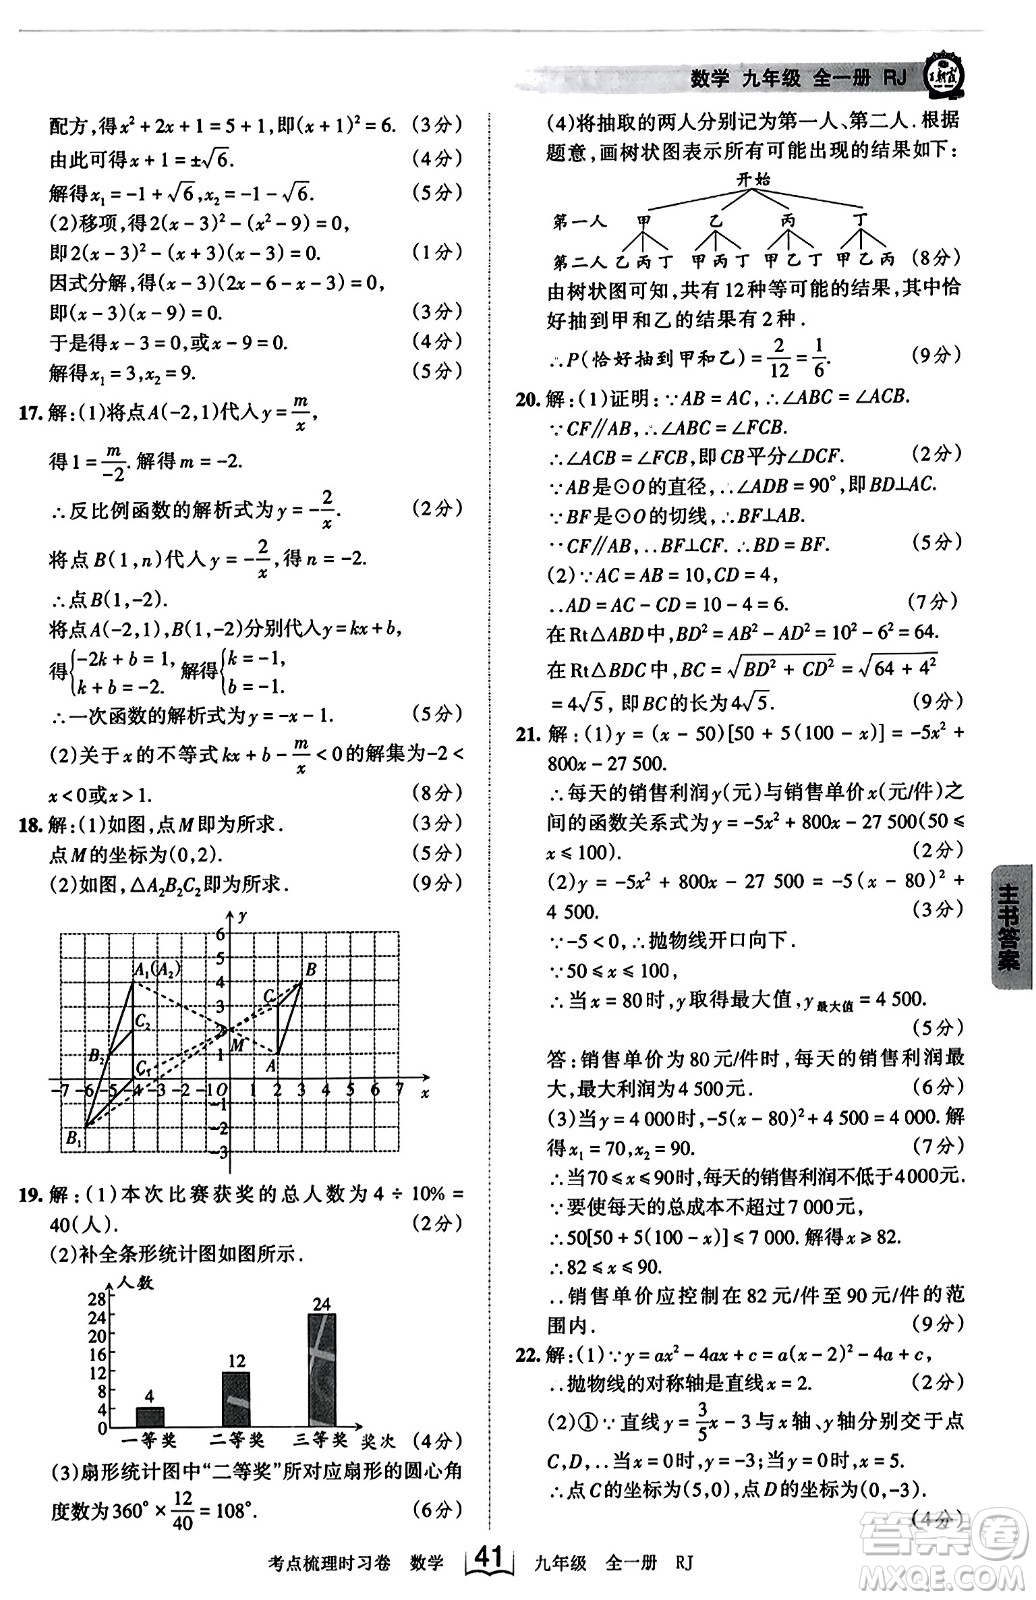 数学 九年级 全一册 RJ
王朝霞
配方,得x²+2x+1=5+1,即(x+1)²=6. (3分)
由此可得x+1=±√6. (4分)
解得x₁=-1+√6,x₂=-1-√6. (5分)
(2)移项,得2(x-3)²-(x²-9)=0,
即2(x-3)²-(x+3)(x-3)=0. (1分)
因式分解,得(x-3)(2x-6-x-3)=0,
即(x-3)(x-9)=0. (3分)
于是得x-3=0,或x-9=0. (4分)
解得x₁=3,x₂=9. (5分)
17.解:(1)将点A(-2,1)代入y=m/x,
得1=m/-2.解得m=-2.
∴反比例函数的解析式为y=-2/x. (2分)
将点B(1,n)代入y=-2/x,得n=-2.
∴点B(1,-2).
将点A(-2,1),B(1,-2)分别代入y=kx+b,
得{-2k+b=1, k+b=-2. 解得{k=-1, b=-1.
∴一次函数的解析式为y=-x-1. (5分)
(2)关于x的不等式kx+b-m/x<0的解集为-2<
x<0或x>1. (8分)
18.解:(1)如图,点M即为所求. (3分)
点M的坐标为(0,2). (5分)
(2)如图,△A₂B₂C₂即为所求. (9分)
y
6
5
A₁(A₂) 4 B
3 C
C₂ 2
M
B₂ 1 A
C₁
-7 -6 -5 -4 -3 -2 -1 0 1 2 3 4 5 6 7 x
-1
B₁ -2
-3
19.解:(1)本次比赛获奖的总人数为4÷10%=
40(人). (2分)
(2)补全条形统计图如图所示.
人数
28
24 24
20
16
12 12
8
4 4
0
一等奖 二等奖 三等奖 奖次 (4分)
(3)扇形统计图中“二等奖”所对应扇形的圆心角
度数为360°×12/40=108°. (6分)
(4)将抽取的两人分别记为第一人、第二人.根据
题意,画树状图表示所有可能出现的结果如下:
开始
第一人 甲 乙 丙 丁
第二人 乙丙丁 甲丙丁 甲乙丁 甲乙丙 (8分)
由树状图可知,共有12种等可能的结果,其中恰
好抽到甲和乙的结果有2种.
∴P(恰好抽到甲和乙)=2/12=1/6. (9分)
20.解:(1)证明:∵AB=AC,∴∠ABC=∠ACB.
∵CF∥AB,∴∠ABC=∠FCB.
∴∠ACB=∠FCB,即CB平分∠DCF. (2分)
∵AB是⊙O的直径,∴∠ADB=90°,即BD⊥AC.
∵BF是⊙O的切线,∴BF⊥AB.
∵CF∥AB,∴BF⊥CF.∴BD=BF. (5分)
(2)∵AC=AB=10,CD=4,
∴AD=AC-CD=10-4=6. (7分)
在Rt△ABD中,BD²=AB²-AD²=10²-6²=64.
在Rt△BDC中,BC=√(BD²+CD²)=√(64+4²)
=4√5.即BC的长为4√5. (9分)
21.解:(1)y=(x-50)[50+5(100-x)]=-5x²+
800x-27 500.
∴每天的销售利润y(元)与销售单价x(元/件)之
间的函数关系式为y=-5x²+800x-27 500(50≤
x≤100). (2分)
(2)y=-5x²+800x-27 500=-5(x-80)²+
4 500. (3分)
∵-5<0,∴抛物线开口向下.
∵50≤x≤100,
∴当x=80时,y取得最大值,y最大值=4 500.
(5分)
答:销售单价为80元/件时,每天的销售利润最
大,最大利润为4 500元. (6分)
(3)当y=4 000时,-5(x-80)²+4 500=4 000.解
得x₁=70,x₂=90. (7分)
∴当70≤x≤90时,每天的销售利润不低于4000元.
∵要使每天的总成本不超过7 000元,
∴50[50+5(100-x)]≤7 000.解得x≥82.
∴82≤x≤90.
∴销售单价应控制在82元/件至90元/件的范
围内. (9分)
22.解:(1)∵y=ax²-4ax+c=a(x-2)²-4a+c,
∴抛物线的对称轴是直线x=2. (2分)
(2)①∵直线y=3/5x-3与x轴、y轴分别交于点
C,D,∴当x=0时,y=-3;当y=0时,x=5.
∴点C的坐标为(5,0),点D的坐标为(0,-3).
(4分)
主书答案
考点梳理时习卷 数学 41 九年级 全一册 RJ
答案圈
MXQE.COM